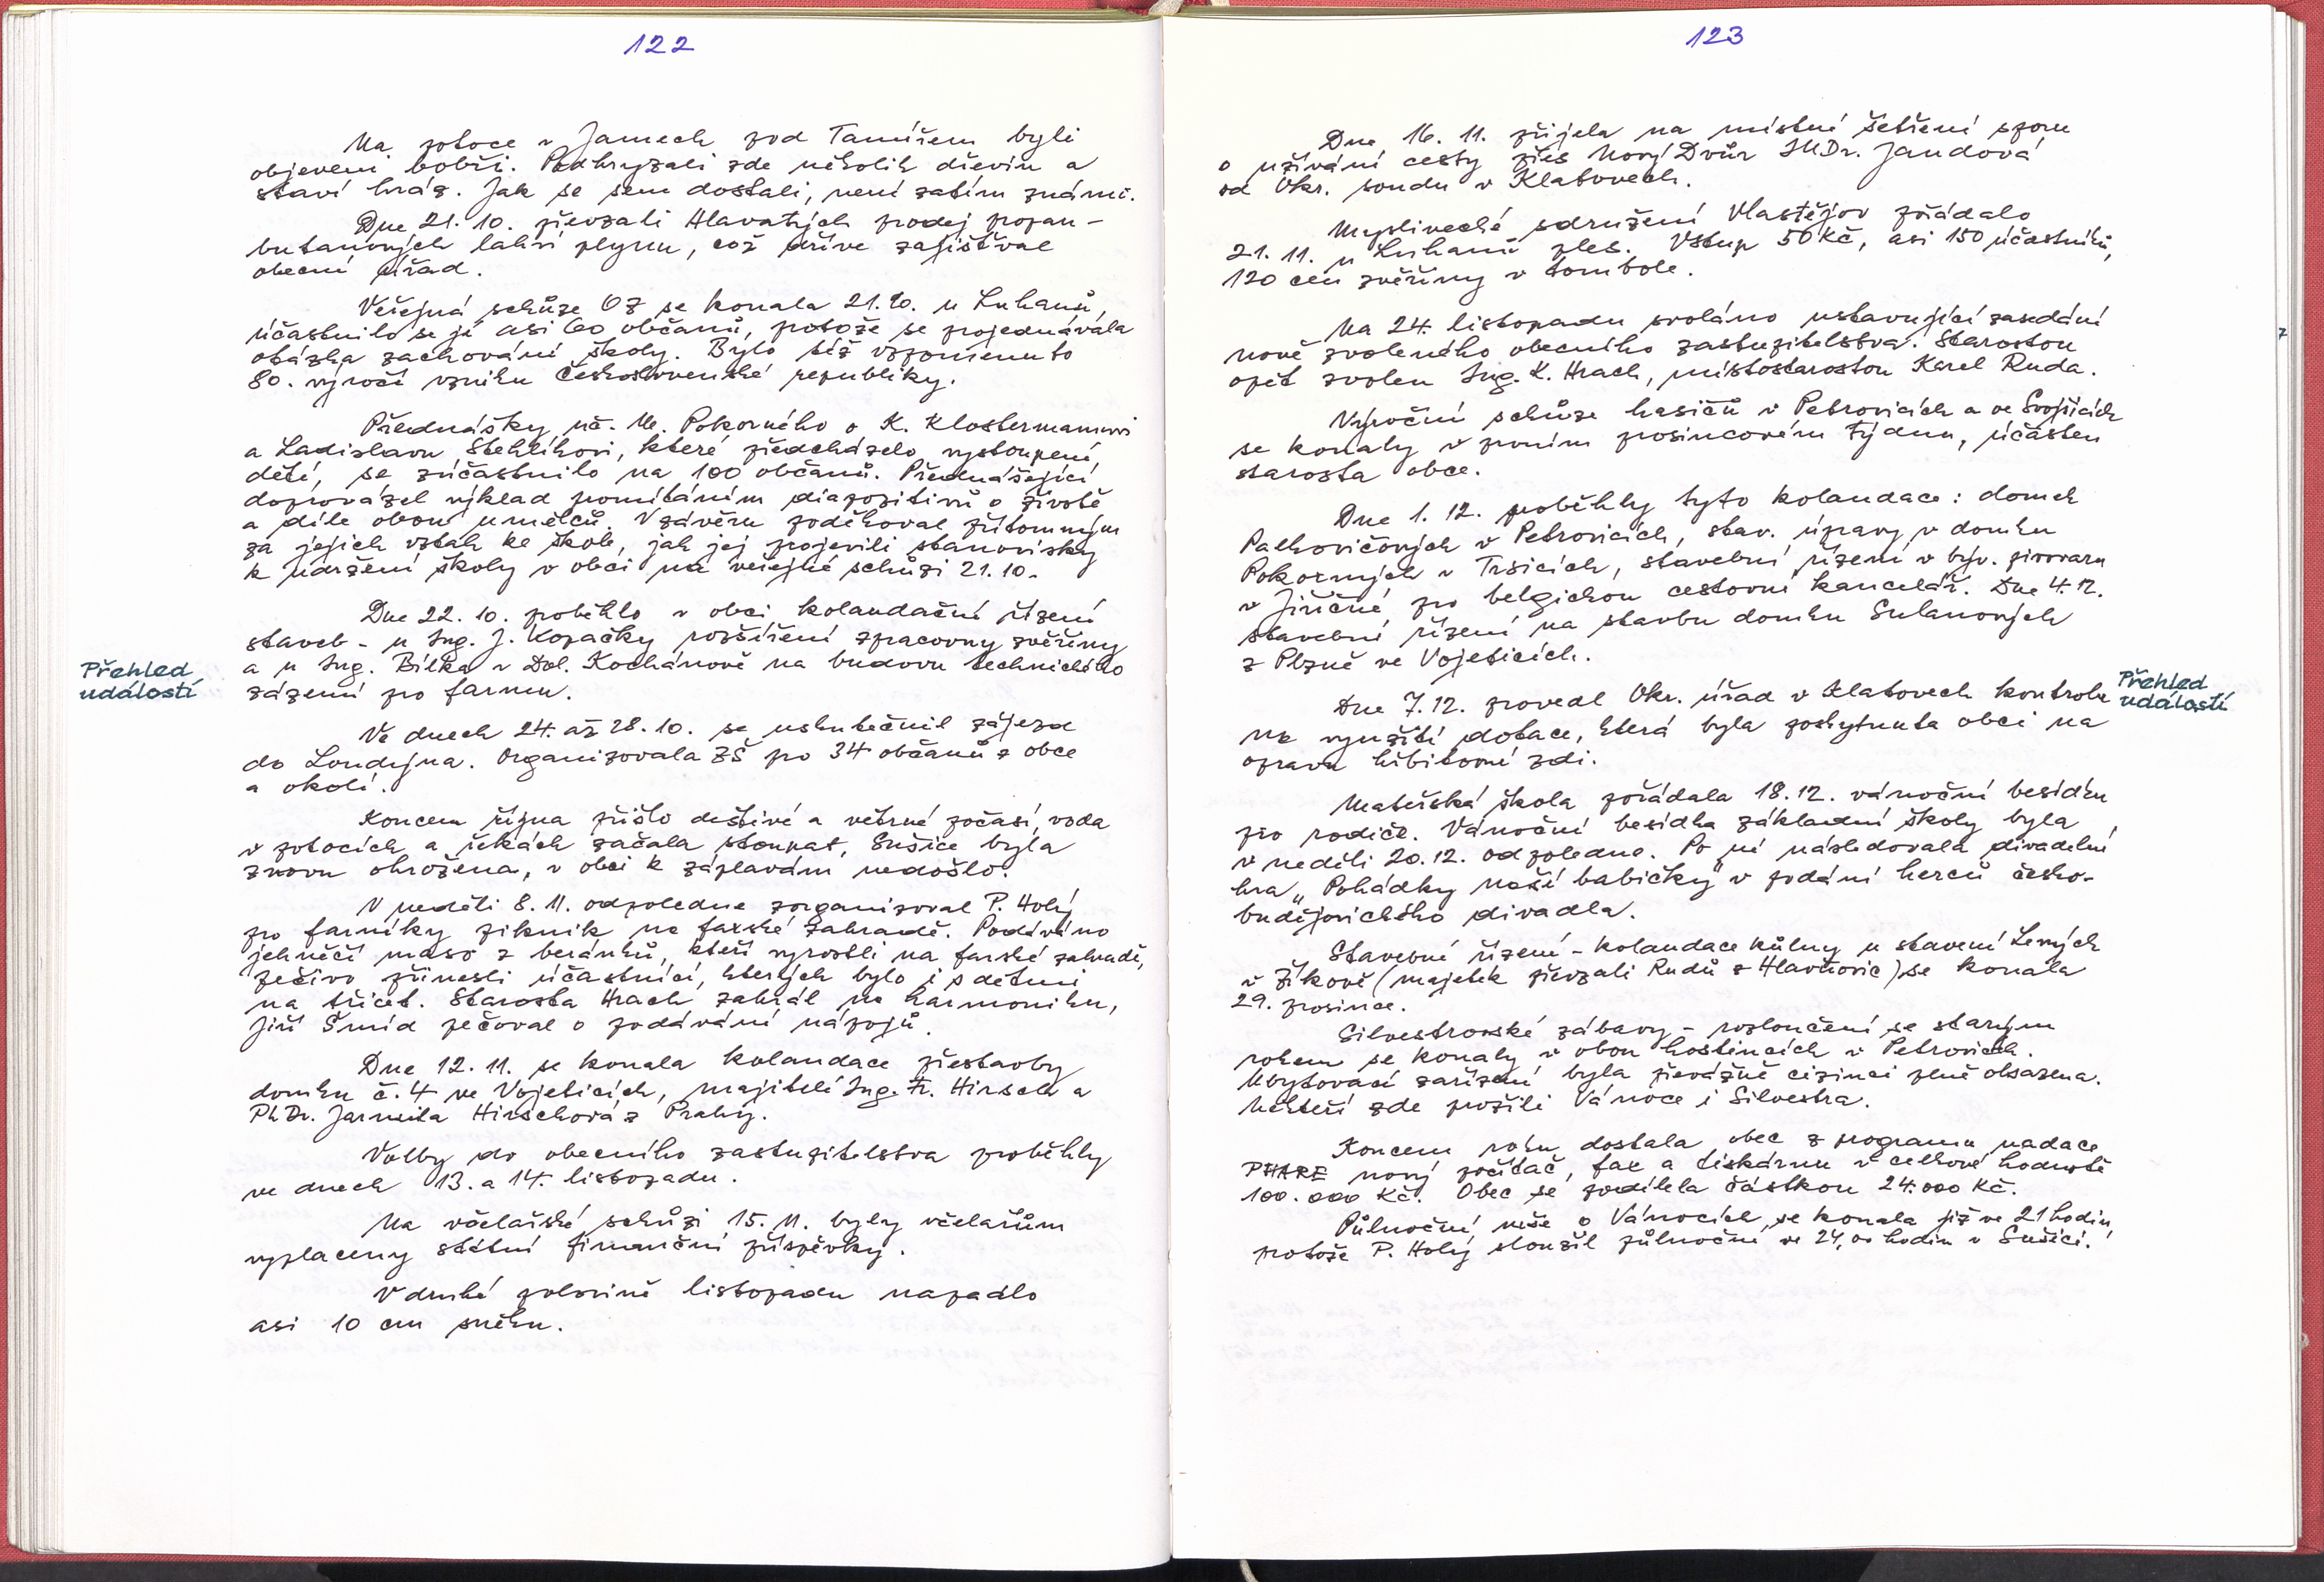 122
Na potoce v Jamech pod Tamířem byli
objeveni bobři. Podhryzali zde několik dřevin a
staví hráz. Jak se sem dostali, není zatím známé.
Dne 21. 10. převzali Hlavatých prodej propan-
butanových lahví plynu, což dříve zajišťoval
obecní úřad.
Veřejná schůze OZ se konala 21.10. u Luhanů,
účastnilo se jí asi 60 občanů, protože se projednávala
otázka zachování školy. Bylo též vzpomenuto
80. výročí vzniku Československé republiky.
Přednášky uč. M. Pokorného o K. Klostermannovi
a Ladislavu Stehlíkovi, které předcházelo vystoupení
dětí, se zúčastnilo na 100 občanů. Přednášející
doprovázel výklad promítáním diapozitivů o životě
a díle obou umělců. V závěru poděkoval přítomným
za jejich vztah ke škole, jak jej projevili stanovisky
k udržení školy v obci na veřejné schůzi 21.10.
Dne 22. 10. proběhlo v obci kolaudační řízení
staveb - u Ing. J. Kopačky rozšíření zpracovny zvěřiny
a u Ing. Bílka v Dol. Kochánově na budovu technického
zázemí pro farmu.
Přehled
událostí
Ve dnech 24. až 28. 10. se uskutečnil zájezd
do Londýna. Organizovala ZŠ pro 34 občanů z obce
a okolí.
Koncem října přišlo deštivé a větrné počasí, voda
v potocích a řekách začala stoupat, Sušice byla
znovu ohrožena, v obci k záplavám nedošlo.
V neděli 8. 11. odpoledne zorganizoval P. Holý
pro farníky piknik na farské zahradě. Podáváno
jehněčí maso z beránků, kteří vyrostli na farské zahradě,
pečivo přinesli účastníci, kterých bylo i s dětmi
na třicet. Starosta Hrach zahrál na harmoniku,
Jiří Šmíd pečoval o podávání nápojů.
Dne 12. 11. se konala kolaudace přestavby
domku č. 4 ve Vojeticích, majitelé Ing. Fr. Hirsch a
PhDr. Jarmila Hirschová z Prahy.
Volby do obecního zastupitelstva proběhly
ve dnech 13. a 14. listopadu.
Na včelařské schůzi 15. 11. byly včelařům
vyplaceny státní finanční příspěvky.
V druhé polovině listopadu napadlo
asi 10 cm sněhu.
123
Dne 16. 11. přijela na místní šetření sporu
o užívání cesty přes Nový Dvůr JUDr. Jandová
od Okr. soudu v Klatovech.
Myslivecké sdružení Vlastějov pořádalo
21. 11. u Luhanů ples. Vstup 50 Kč, asi 150 účastníků,
120 cen zvěřiny v tombole.
Na 24. listopadu svoláno ustavující zasedání
nově zvoleného obecního zastupitelstva. Starostou
opět zvolen Ing. K. Hrach, místostarostou Karel Ruda.
Výroční schůze hasičů v Petrovicích a ve Svojšicích
se konaly v prvním prosincovém týdnu, účasten
starosta obce.
Dne 1. 12. proběhly tyto kolaudace: domek
Palkovičových v Petrovicích, stav. úpravy v domku
Pokorných v Trsicích, stavební řízení v býv. pivovaru
v Jiřičné pro belgickou cestovní kancelář. Dne 4. 12.
stavební řízení na stavbu domku Sulanových
z Plzně ve Vojeticích.
Dne 7. 12. provedl Okr. úřad v Klatovech kontrolu
na využití dotace, která byla poskytnuta obci na
opravu hřbitovní zdi.
Přehled
událostí
Mateřská škola pořádala 18. 12. vánoční besídku
pro rodiče. Vánoční besídka základní školy byla
v neděli 20. 12. odpoledne. Po ní následovala divadelní
hra „Pohádky naší babičky" v podání herců česko-
budějovického divadla.
Stavební řízení - kolaudace kůlny u stavení Lených
v Žikově (majetek převzali Rudů z Hlavňovic) se konala
29. prosince.
Silvestrovské zábavy - rozloučení se starým
rokem se konaly v obou hostincích v Petrovicích.
Ubytovací zařízení byla převážně cizinci plně obsazena.
Někteří zde prožili Vánoce i Silvestra.
Koncem roku dostala obec z programu nadace
PHARE nový počítač, fax a tiskárnu v celkové hodnotě
100.000 Kč. Obec se podílela částkou 24.000 Kč.
Půlnoční mše o Vánocích se konala již ve 21 hodin,
protože P. Holý sloužil půlnoční ve 24,00 hodin v Sušici.